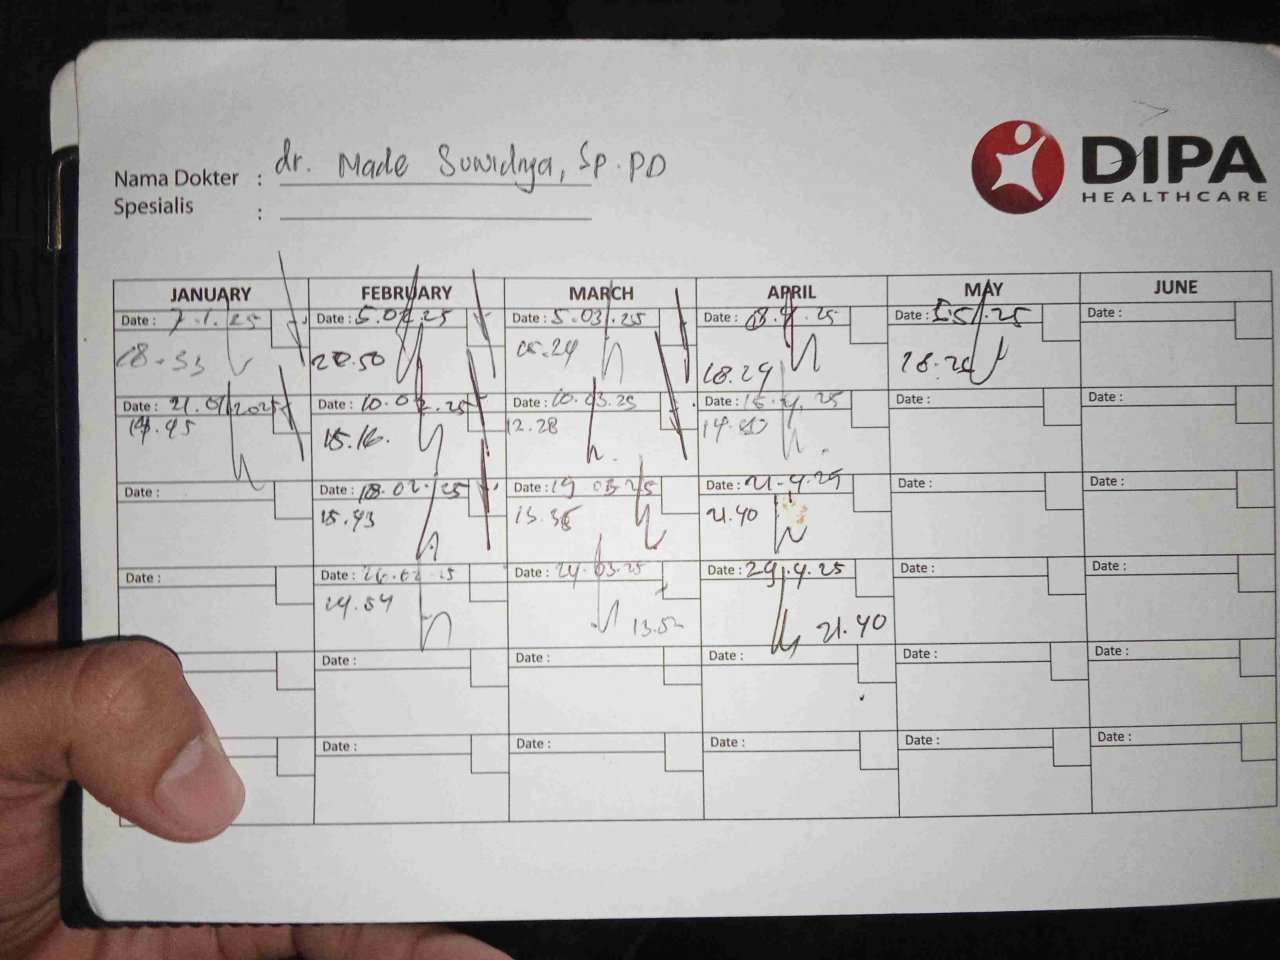 DIPA
HEALTHCARE
Nama Dokter : dr. Made Suwidnya, Sp.PD
Spesialis :
JANUARY FEBRUARY MARCH APRIL MAY JUNE
Date : 7.1.25 Date : 5.02.25 Date : 5.03.25 Date : 08.4.25 Date : 5.5.25 Date :
18.53 20.50 15.24 18.29
Date : 21.01.2025 Date : 10.02.25 Date : 10.03.25 Date : 15.4.25 Date : Date :
19.45 15.16. 12.28
Date : Date : 18.02.25 Date : 19 03.25 Date : 21-4.25 Date : Date :
15.43 21.40
Date : Date : 26.02.25 Date : 24.03.25 Date : 29.4.25 Date : Date :
14.54 21.40
Date : Date : Date : Date : Date :
Date : Date : Date : Date : Date :